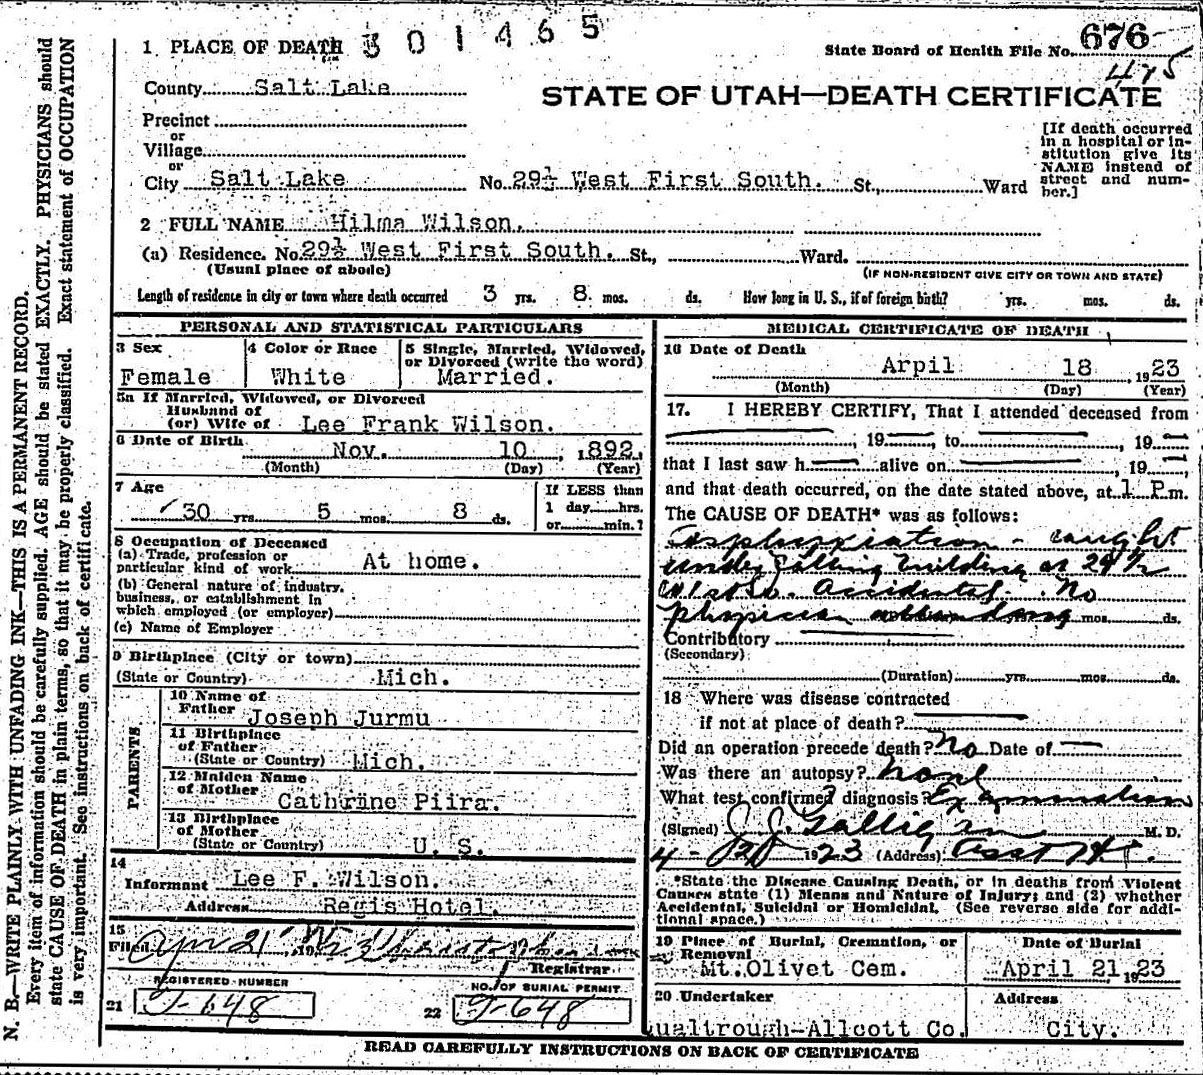 301465
State Board of Health File No. 676
475
1 PLACE OF DEATH
County Salt Lake
STATE OF UTAH—DEATH CERTIFICATE
Precinct
or
Village
or
City Salt Lake No. 29½ West First South. St., Ward
[If death occurred in a hospital or institution give its NAME instead of street and number.]
2 FULL NAME Hilma Wilson.
(a) Residence. No. 29½ West First South. St., Ward.
(Usual place of abode)
(IF NON-RESIDENT GIVE CITY OR TOWN AND STATE)
Length of residence in city or town where death occurred 3 yrs. 8 mos. ds. How long in U. S., if of foreign birth? yrs. mos. ds.
PERSONAL AND STATISTICAL PARTICULARS
3 Sex
Female
4 Color or Race
White
5 Single, Married, Widowed, or Divorced (write the word)
Married.
5a If Married, Widowed, or Divorced
Husband of
(or) Wife of Lee Frank Wilson.
6 Date of Birth
Nov. 10, 1892.
(Month) (Day) (Year)
7 Age
30 yrs. 5 mos. 8 ds.
If LESS than
1 day hrs.
or min.?
8 Occupation of Deceased
(a) Trade, profession or
particular kind of work At home.
(b) General nature of industry,
business, or establishment in
which employed (or employer)
(c) Name of Employer
9 Birthplace (City or town)
(State or Country) Mich.
PARENTS
10 Name of
Father Joseph Jurmu
11 Birthplace
of Father
(State or Country) Mich.
12 Maiden Name
of Mother Cathrine Piira.
13 Birthplace
of Mother
(State or Country) U. S.
14
Informant Lee F. Wilson.
Address Regis Hotel.
15
Filed Apr 21
Registrar
REGISTERED NUMBER
21 J-648
NO. OF BURIAL PERMIT
22 J-648
MEDICAL CERTIFICATE OF DEATH
16 Date of Death
Arpil 18, 1923
(Month) (Day) (Year)
17. I HEREBY CERTIFY, That I attended deceased from
, 19 , to , 19
that I last saw h alive on , 19
and that death occurred, on the date stated above, at 1 P.m.
The CAUSE OF DEATH* was as follows:
Asphyxiation - caught
under falling building at 29½
W 1st So. Accidental. No
physician attending mos. ds.
Contributory
(Secondary)
(Duration) yrs. mos. ds.
18 Where was disease contracted
if not at place of death?
Did an operation precede death? No Date of
Was there an autopsy? None
What test confirmed diagnosis? Examination
(Signed) J. J. Galligan M. D.
4-20 1923 (Address) Asst H
*State the Disease Causing Death, or in deaths from Violent
Causes state (1) Means and Nature of Injury; and (2) whether
Accidental, Suicidal or Homicidal. (See reverse side for addi-
tional space.)
19 Place of Burial, Cremation, or
Removal
Mt. Olivet Cem.
Date of Burial
April 21, 1923
20 Undertaker
ualtrough-Allcott Co.
Address
City.
READ CAREFULLY INSTRUCTIONS ON BACK OF CERTIFICATE
N. B.—WRITE PLAINLY WITH UNFADING INK—THIS IS A PERMANENT RECORD.
Every item of information should be carefully supplied. AGE should be stated EXACTLY. PHYSICIANS should
state CAUSE OF DEATH in plain terms, so that it may be properly classified. Exact statement of OCCUPATION
is very important. See instructions on back of certificate.